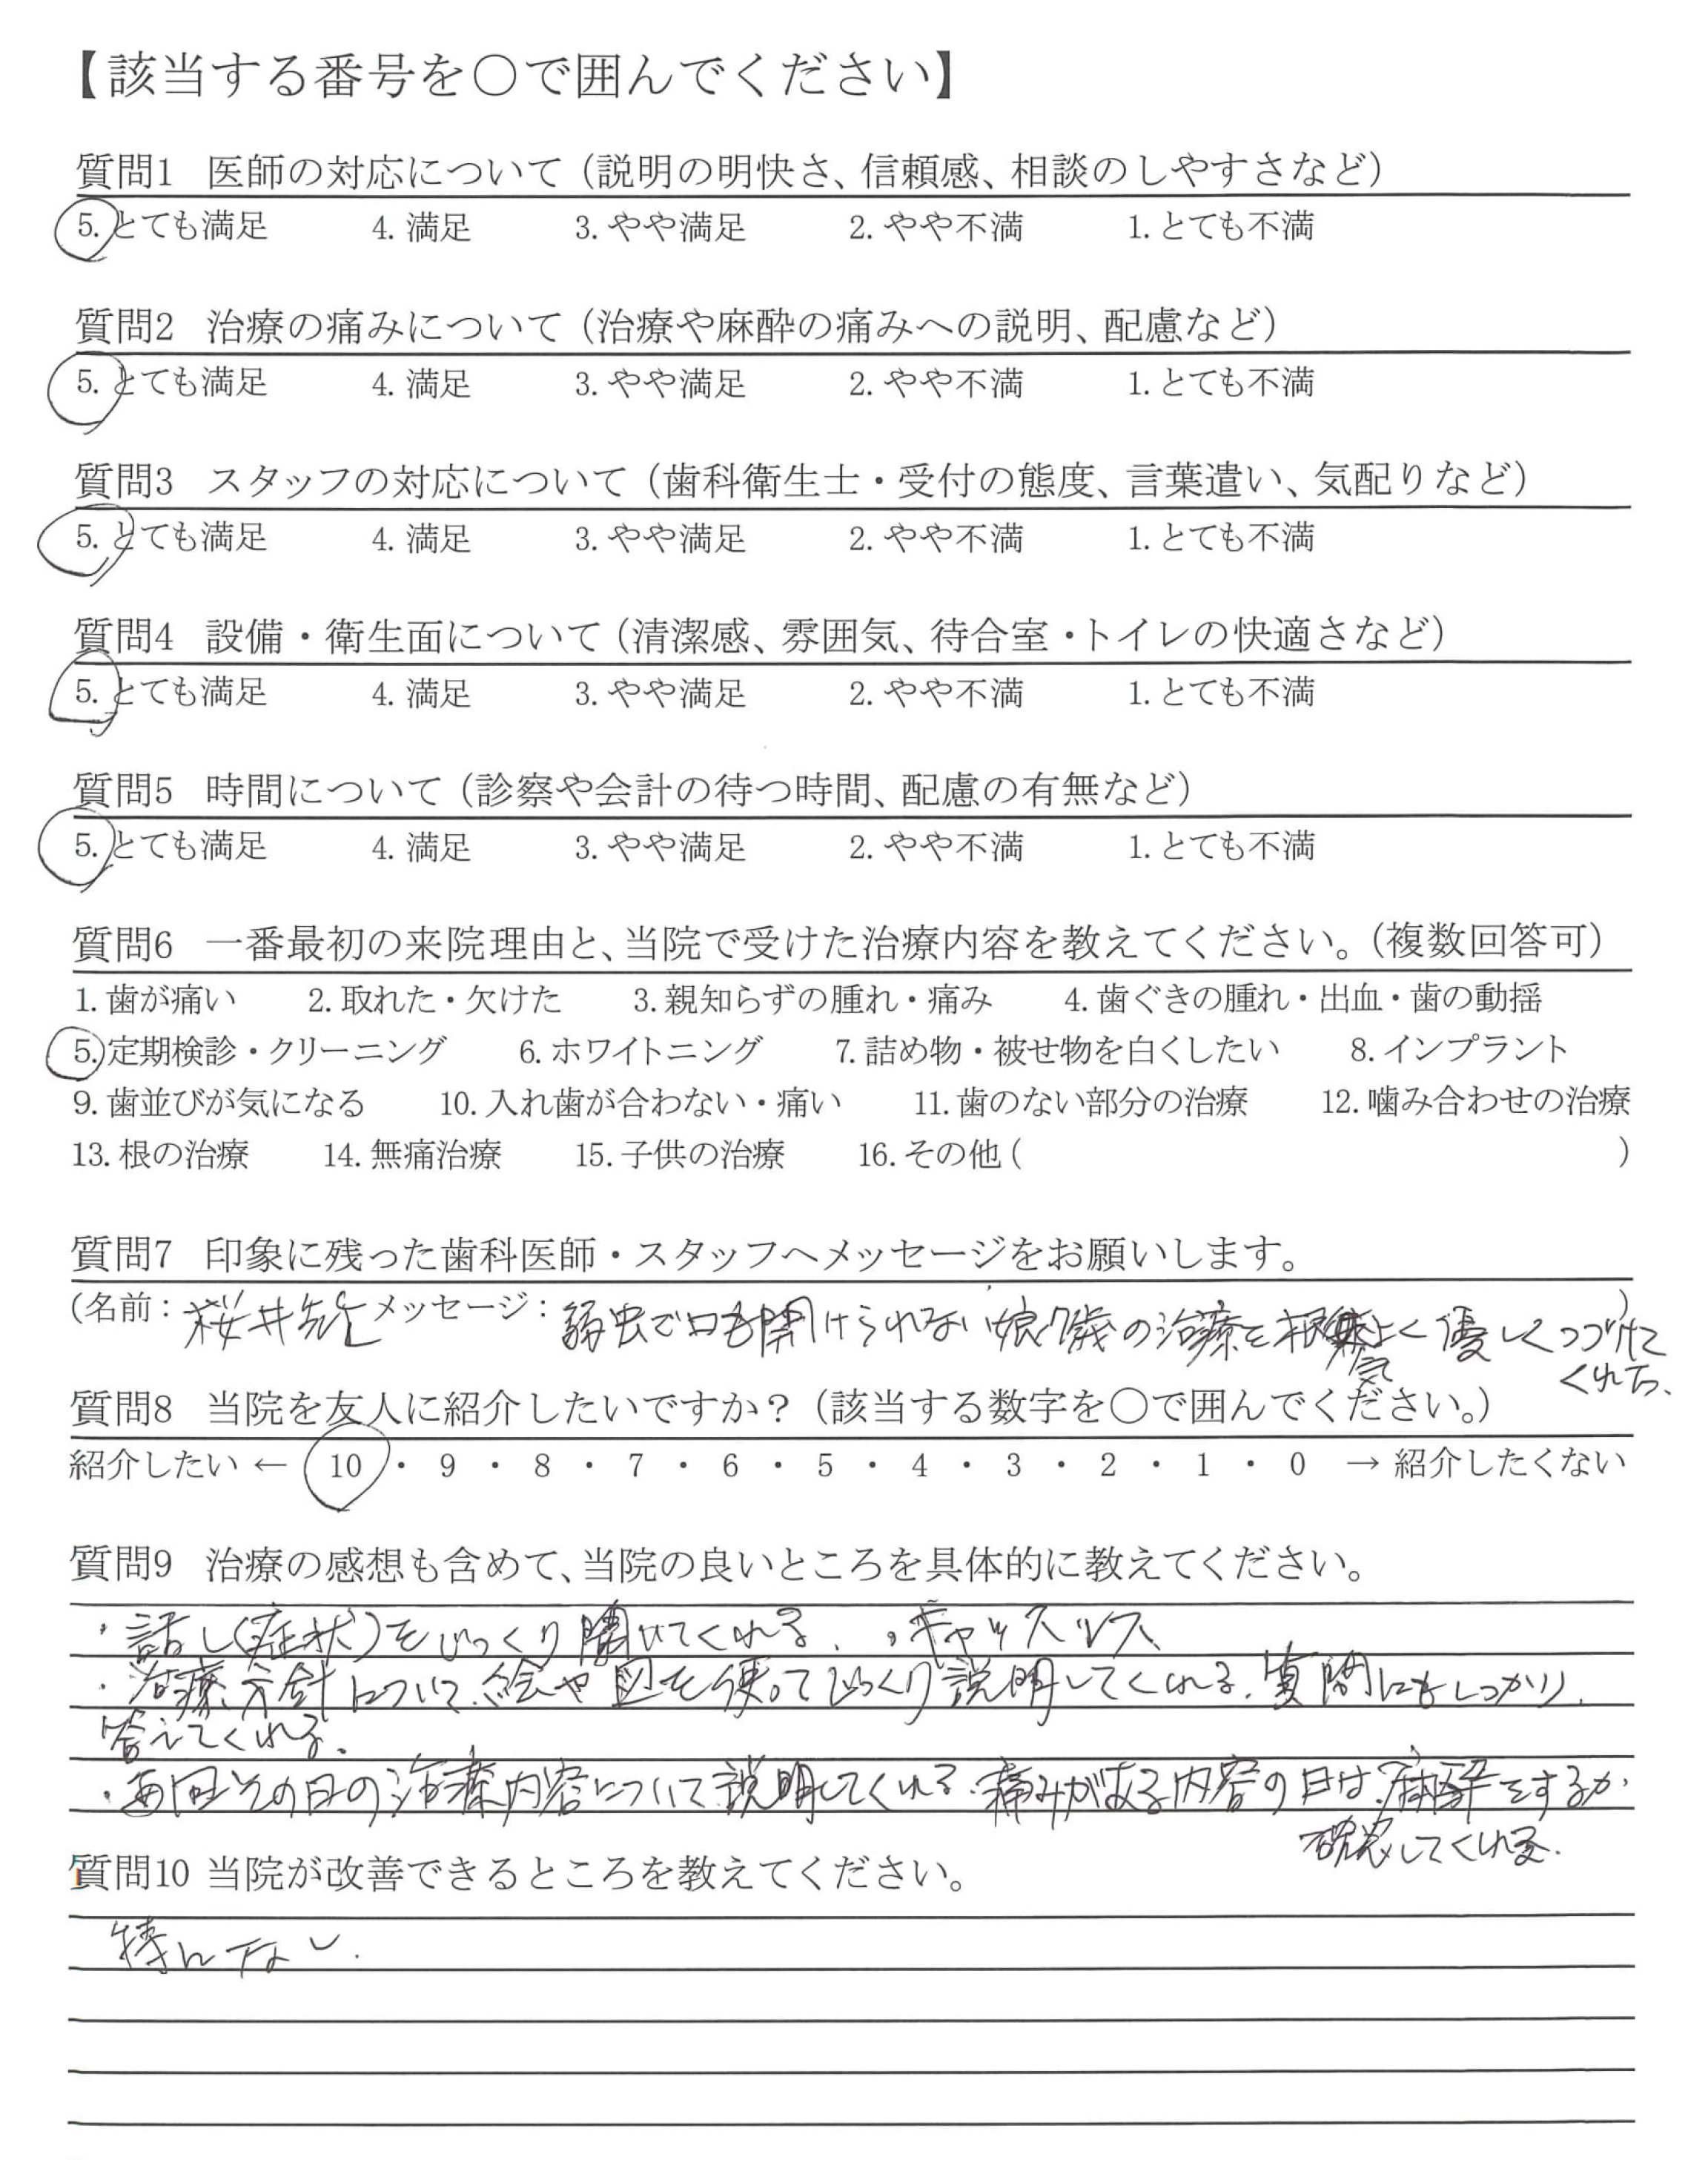 【該当する番号を〇で囲んでください】
質問1 医師の対応について（説明の明快さ、信頼感、相談のしやすさなど）
5. とても満足 4. 満足 3. やや満足 2. やや不満 1. とても不満
質問2 治療の痛みについて（治療や麻酔の痛みへの説明、配慮など）
5. とても満足 4. 満足 3. やや満足 2. やや不満 1. とても不満
質問3 スタッフの対応について（歯科衛生士・受付の態度、言葉遣い、気配りなど）
5. とても満足 4. 満足 3. やや満足 2. やや不満 1. とても不満
質問4 設備・衛生面について（清潔感、雰囲気、待合室・トイレの快適さなど）
5. とても満足 4. 満足 3. やや満足 2. やや不満 1. とても不満
質問5 時間について（診察や会計の待つ時間、配慮の有無など）
5. とても満足 4. 満足 3. やや満足 2. やや不満 1. とても不満
質問6 一番最初の来院理由と、当院で受けた治療内容を教えてください。（複数回答可）
1. 歯が痛い 2. 取れた・欠けた 3. 親知らずの腫れ・痛み 4. 歯ぐきの腫れ・出血・歯の動揺
5. 定期検診・クリーニング 6. ホワイトニング 7. 詰め物・被せ物を白くしたい 8. インプラント
9. 歯並びが気になる 10. 入れ歯が合わない・痛い 11. 歯のない部分の治療 12. 噛み合わせの治療
13. 根の治療 14. 無痛治療 15. 子供の治療 16. その他 ( )
質問7 印象に残った歯科医師・スタッフへメッセージをお願いします。
(名前: 桜井先生 メッセージ: 弱虫で口も開けられない娘7歳の治療を根気よく優しくつづけて
くれた、
質問8 当院を友人に紹介したいですか？（該当する数字を〇で囲んでください。）
紹介したい ← 10 ・ 9 ・ 8 ・ 7 ・ 6 ・ 5 ・ 4 ・ 3 ・ 2 ・ 1 ・ 0 → 紹介したくない
質問9 治療の感想も含めて、当院の良いところを具体的に教えてください。
・話し(症状)をじっくり聞いてくれる、 ・キャッスレス、
・治療方針について、絵や図を使ってじっくり説明してくれる、質問にもしっかり
答えてくれる、
・毎回その日の治療内容について説明してくれる、痛みがある内容の日は、麻酔をするか
確認してくれる、
質問10 当院が改善できるところを教えてください。
特になし、